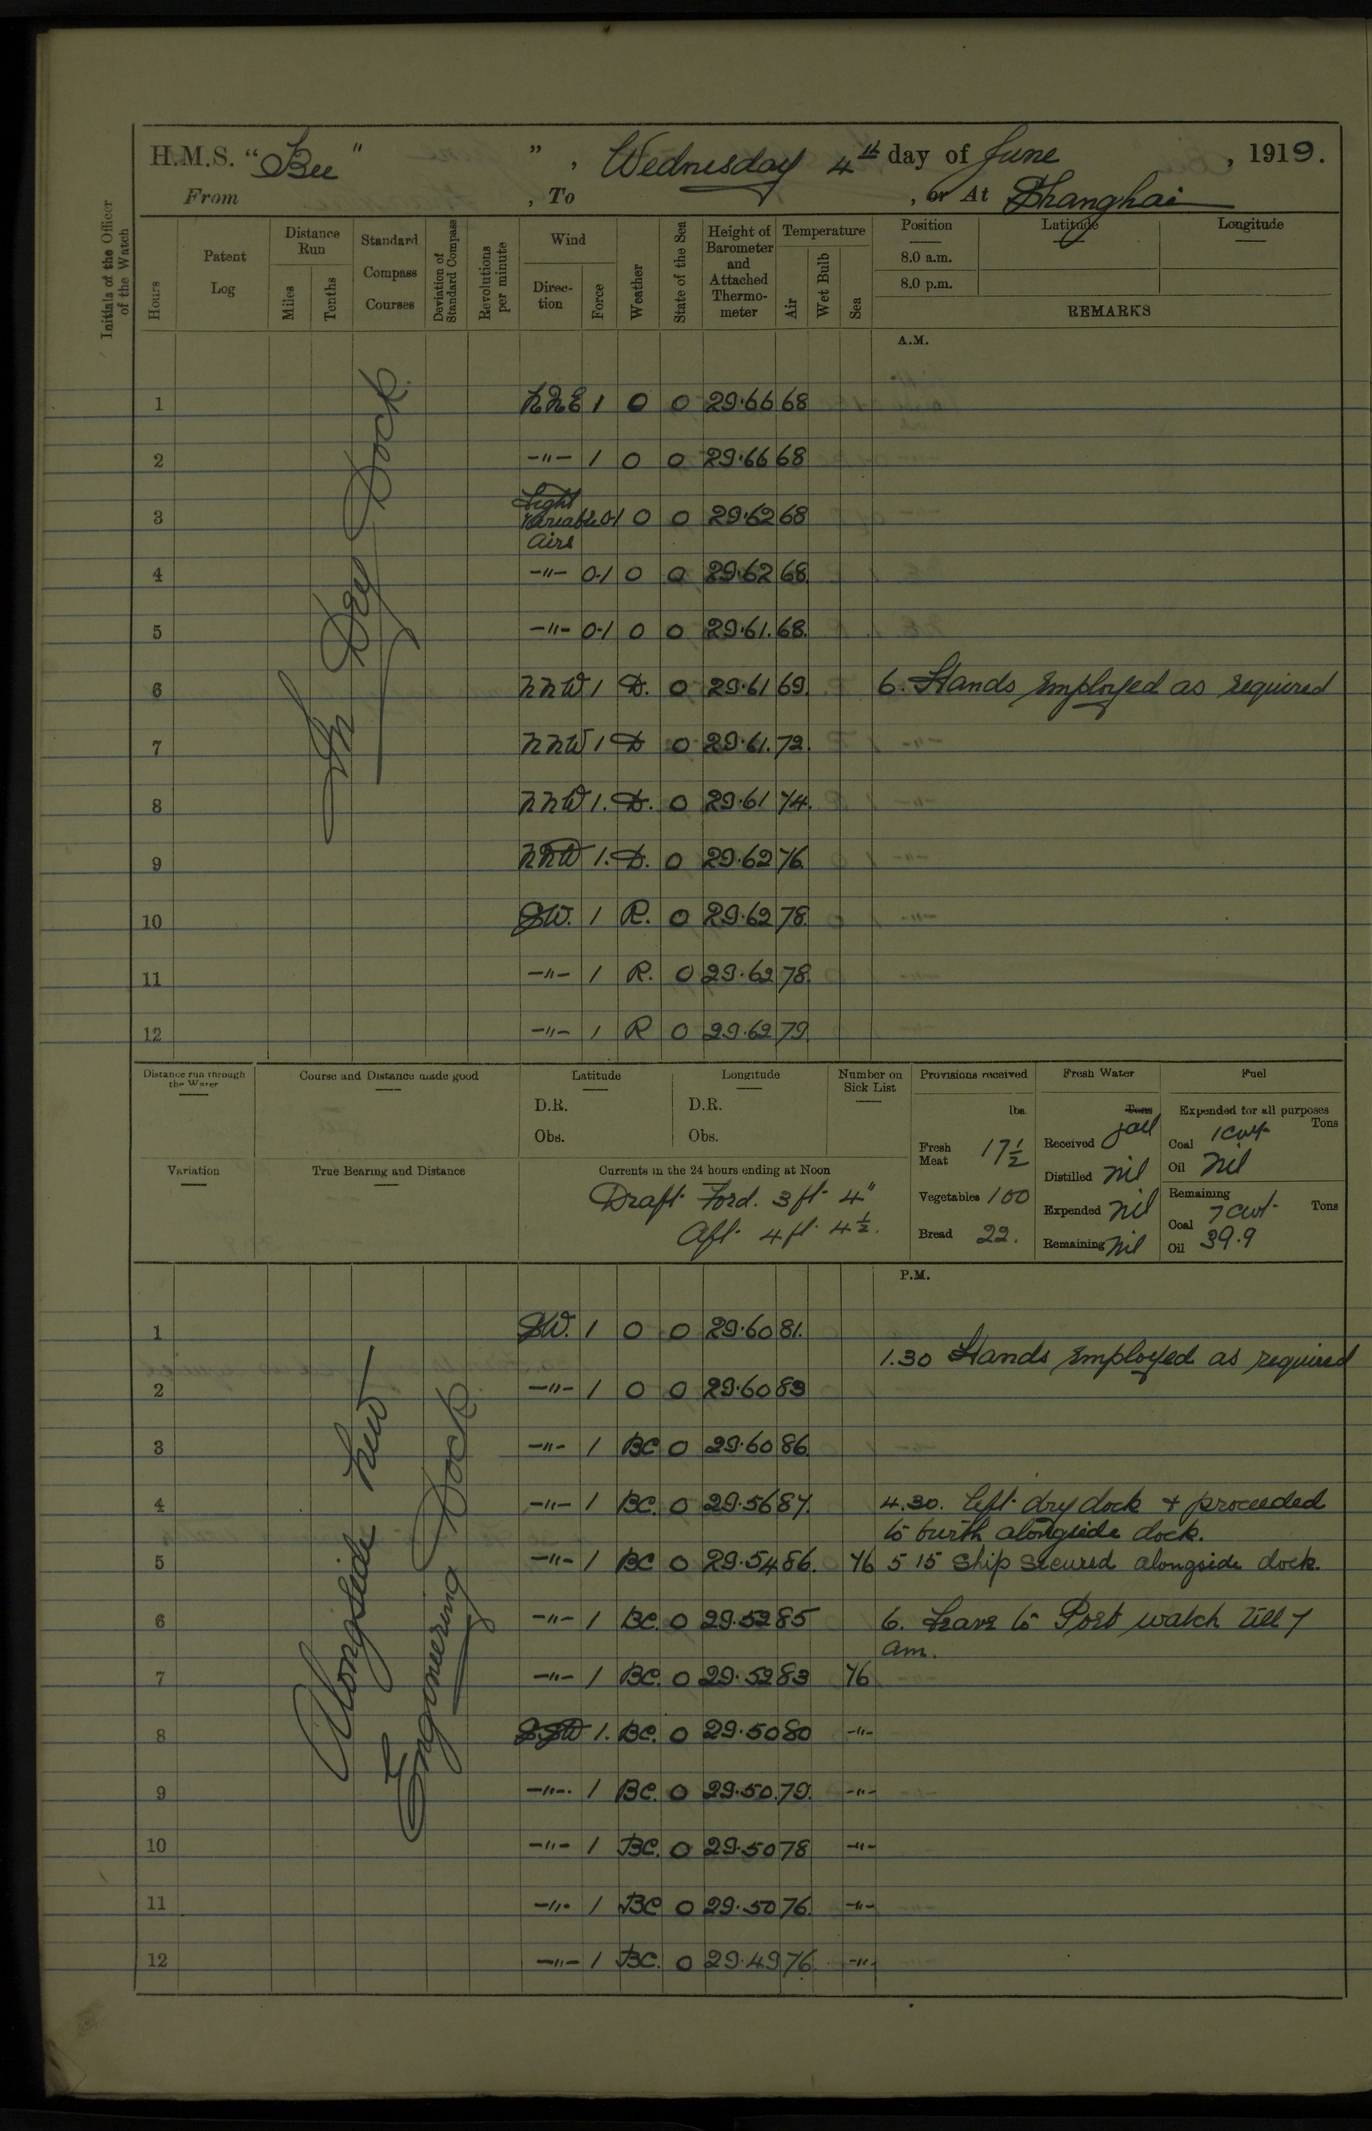 H.M.S. "Bee" ", Wednesday 4th day of June, 1919.
From , To , or At Shanghai
Initials of the Officer of the Watch
Hours
Patent Log
Distance Run
Miles
Tenths
Standard Compass Courses
Deviation of Standard Compass
Revolutions per minute
Wind
Direction
Force
Weather
State of the Sea
Height of Barometer and Attached Thermometer
Temperature
Air
Wet Bulb
Sea
Position Latitude Longitude
8.0 a.m.
8.0 p.m.
REMARKS
A.M.
In Dry Dock.
1 NNE 1 O O 29.66 68
2 -"- 1 O O 29.66 68
3 Light Variable Airs 0.1 O O 29.62 68
4 -"- 0.1 O O 29.62 68
5 -"- 0.1 O O 29.61. 68.
6 NNW 1 D. O 29.61 69. 6. Hands employed as required
7 NNW 1 D O 29.61. 72.
8 NNW 1. D. O 29.61 74.
9 NNW 1. D. O 29.62 76
10 SW. 1 R. O 29.62 78.
11 -"- 1 R. O 29.62 78.
12 -"- 1 R O 29.62 79
Distance run through the Water
Course and Distance made good
Latitude
D.R.
Obs.
Longitude
D.R.
Obs.
Number on Sick List
Provisions received
lbs.
Fresh Meat 17½
Vegetables 100
Bread 22.
Fresh Water
Tons
Received
Distilled nil
Expended nil
Remaining nil
Fuel
Expended for all purposes
Tons
Coal 1 cwt
Oil nil
Remaining
Tons
Coal 7 cwt.
Oil 39.9
Variation
True Bearing and Distance
Currents in the 24 hours ending at Noon
Draft Ford. 3 ft. 4"
Aft. 4 ft. 4½.
P.M.
Alongside New
Engineering Dock
1 SW. 1 O O 29.60 81.
1.30 Hands employed as required
2 -"- 1 O O 29.60 83
3 -"- 1 BC O 29.60 86
4 -"- 1 BC. O 29.56 87. 4.30. left dry dock + proceeded
to berth alongside dock.
5 -"- 1 BC O 29.54 86. 76 5 15 Ship secured alongside dock.
6 -"- 1 BC. O 29.52 85 6. Leave to Port watch till 7
am.
7 -"- 1 BC. O 29.52 83 76
8 SSW 1. BC. O 29.50 80 -"-
9 -"-. 1 BC. O 29.50. 79. -"-
10 -"- 1 BC. O 29.50 78 -"-
11 -"- 1 BC O 29.50 76. -"-
12 -"- 1 BC. O 29.49 76. -"-